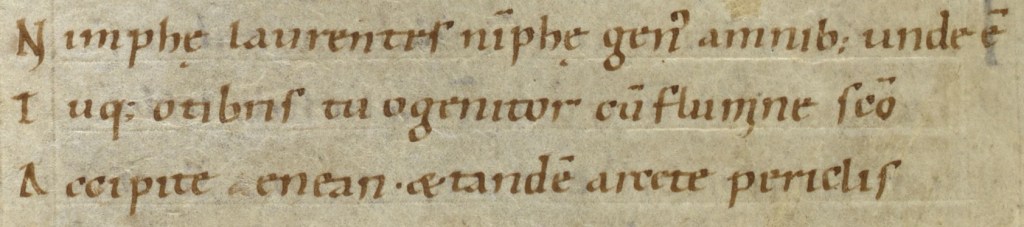 N imphę laurentes nīphę gen᷒ amnib; unde ē
T uq; o tibris tu o genitor cū flumine scō
A ccipite aenean · & tandē arcete periclis